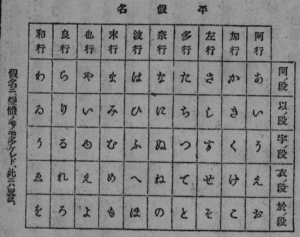 平假名
阿ノ段 以ノ段 宇ノ段 衣ノ段 於ノ段
阿行 あ い う え お
加行 か き く け こ
左行 さ し す せ そ
多行 た ち つ て と
奈行 な に ぬ ね の
波行 は ひ ふ へ ほ
末行 ま み む め も
也行 や い ゆ え よ
良行 ら り る れ ろ
和行 わ ゐ う ゑ を
假名